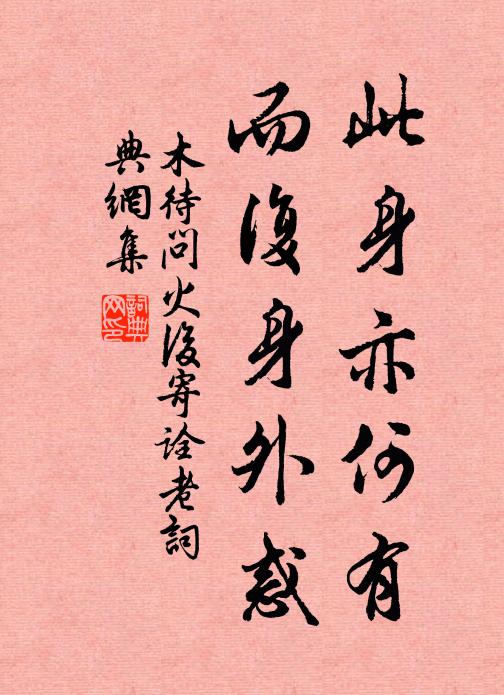 此身亦何有
而復身外惑
木待問火後寄詮老詞
典網集
詞典
网印